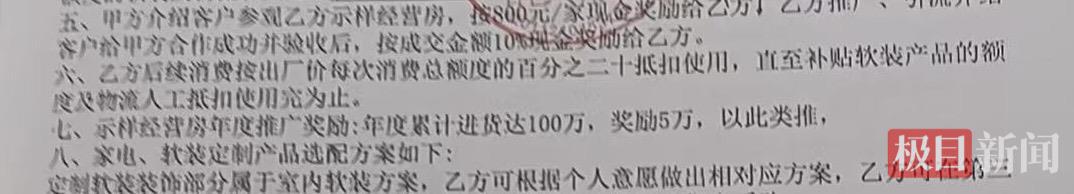 五、甲方介绍客户参观乙方示样经营房，按800元/家现金奖励给乙方，乙方推广、引流介绍
客户给甲方合作成功并验收后，按成交金额10%现金奖励给乙方。
六、乙方后续消费按出厂价每次消费总额度的百分之二十抵扣使用，直至补贴软装产品的额
度及物流人工抵扣使用完为止。
七、示样经营房年度推广奖励:年度累计进货达100万，奖励5万，以此类推，
八、家电、软装定制产品选配方案如下:
定制软装装饰部分属于室内软装方案，乙方可根据个人意愿做出相对应方案，乙方可在第三
极目新闻